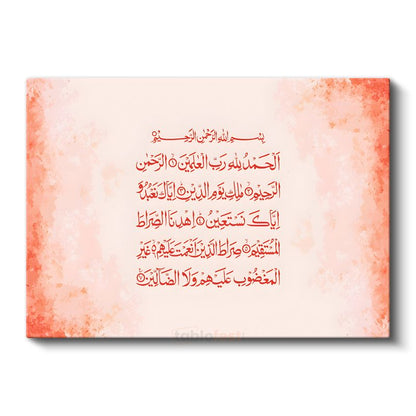 بِسْمِ اللهِ الرَّحْمٰنِ الرَّحِيْمِ
اَلْحَمْدُ لِلّٰهِ رَبِّ الْعٰلَمِيْنَ ۝ الرَّحْمٰنِ
الرَّحِيْمِ ۝ مٰلِكِ يَوْمِ الدِّيْنِ ۝ اِيَّاكَ نَعْبُدُ وَ
اِيَّاكَ نَسْتَعِيْنُ ۝ اِهْدِنَا الصِّرَاطَ
الْمُسْتَقِيْمَ ۝ صِرَاطَ الَّذِيْنَ اَنْعَمْتَ عَلَيْهِمْ ۝ غَيْرِ
الْمَغْضُوْبِ عَلَيْهِمْ وَلَا الضَّآلِّيْنَ ۝
tablofest